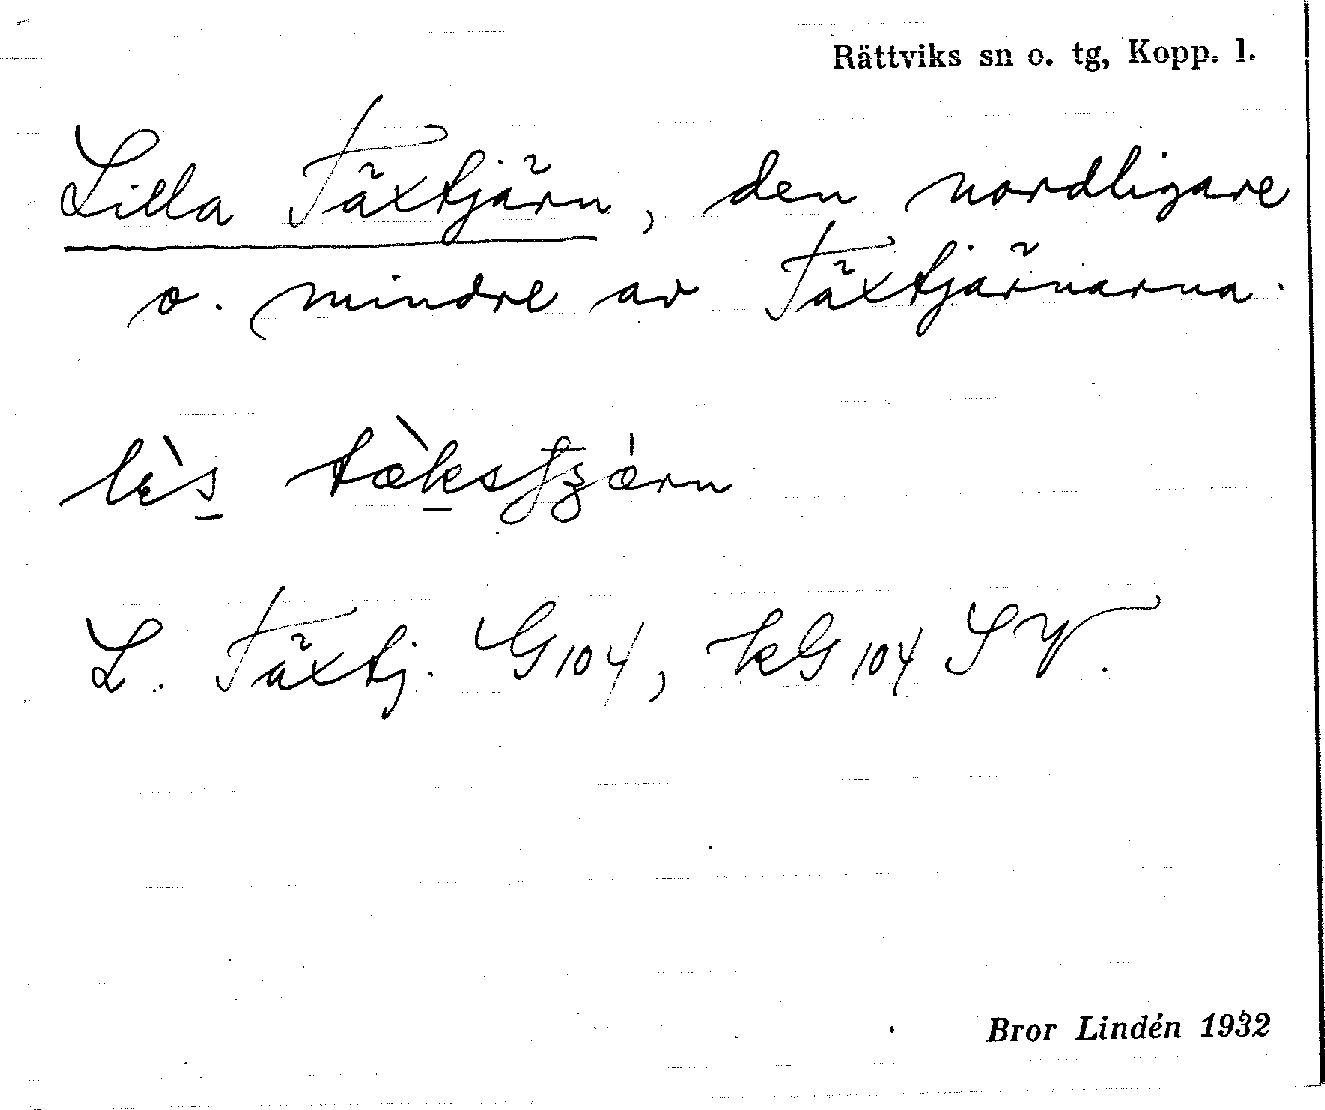 Rättviks sn o. tg, Kopp. l.
Lilla Täxtjärn, den nordligare
o. mindre av Täxtjärnarna.
L. Täxtj. G104, kG 104 SV.
Bror Lindén 1932